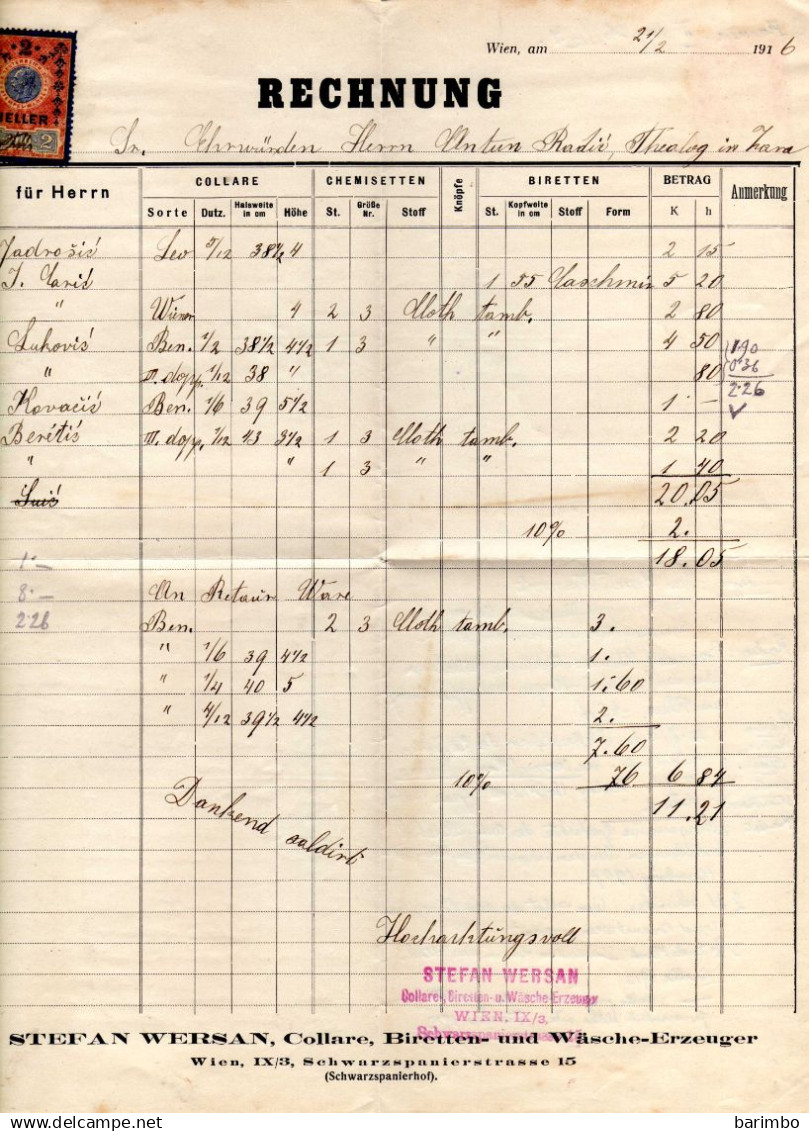 Wien, am 21/2 1916
RECHNUNG
2
HELLER
2
Sr. Ehrwürden Herrn Antun Radić, Theolog in Zara
für Herrn COLLARE CHEMISETTEN Knöpfe BIRETTEN BETRAG Anmerkung
Sorte Dutz. Halsweite in cm Höhe St. Größe Nr. Stoff St. Kopfweite in cm Stoff Form K h
Jadrošić Leo /12 38 1/2 4 2 15
J. Carić 1 55 Caschmir 5 20
" 4 2 3 Cloth tamb. 2 80
Luković Ben. 1/2 38 1/2 4 1/2 1 3 " " 4 50
1.90
" III. dopp. 1/12 38 " 80
0.36
2.26
Kovačić Ben. 1/6 39 5 1/2 1 -
Beretić III. dopp. 1/12 43 3 1/2 1 3 Cloth tamb. 2 20
" " 1 3 " " 1 40
20.05
10% 2.
18.05
1.-
8.- An Retour Ware
2.26 Ben. 2 3 Cloth tamb. 3.
" 1/6 39 4 1/2 1.
" 1/4 40 5 1.60
" 4/12 39 1/2 4 1/2 2.
7.60
10% 76 6 84
11.21
Dankend saldirt
Hochachtungsvoll
STEFAN WERSAN
Collare-, Biretten- u. Wäsche-Erzeuger
WIEN, IX/3,
STEFAN WERSAN, Collare, Biretten- und Wäsche-Erzeuger
Wien, IX/3, Schwarzspanierstrasse 15
(Schwarzspanierhof).
barimbo